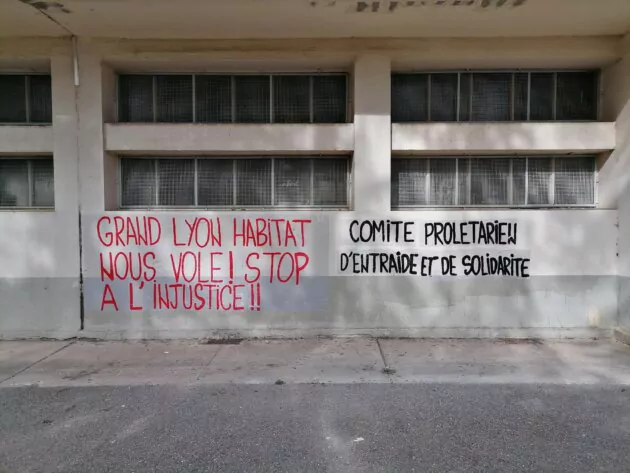 GRAND LYON HABITAT
NOUS VOLE! STOP
A L'INJUSTICE!!
COMITE PROLETARIEN
D'ENTRAIDE ET DE SOLIDARITE